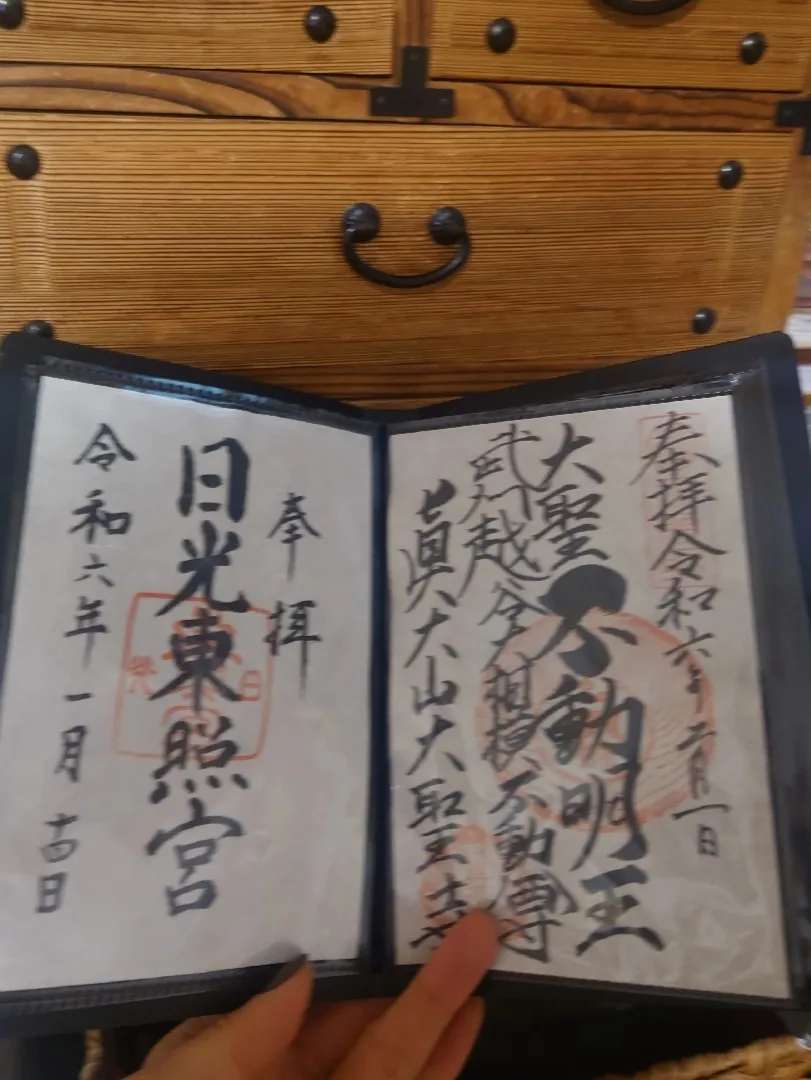 奉拝 令和六年二月一日
大聖不動明王
武州越谷大相模不動尊
眞大山大聖寺
奉拝
日光東照宮
令和六年一月十四日